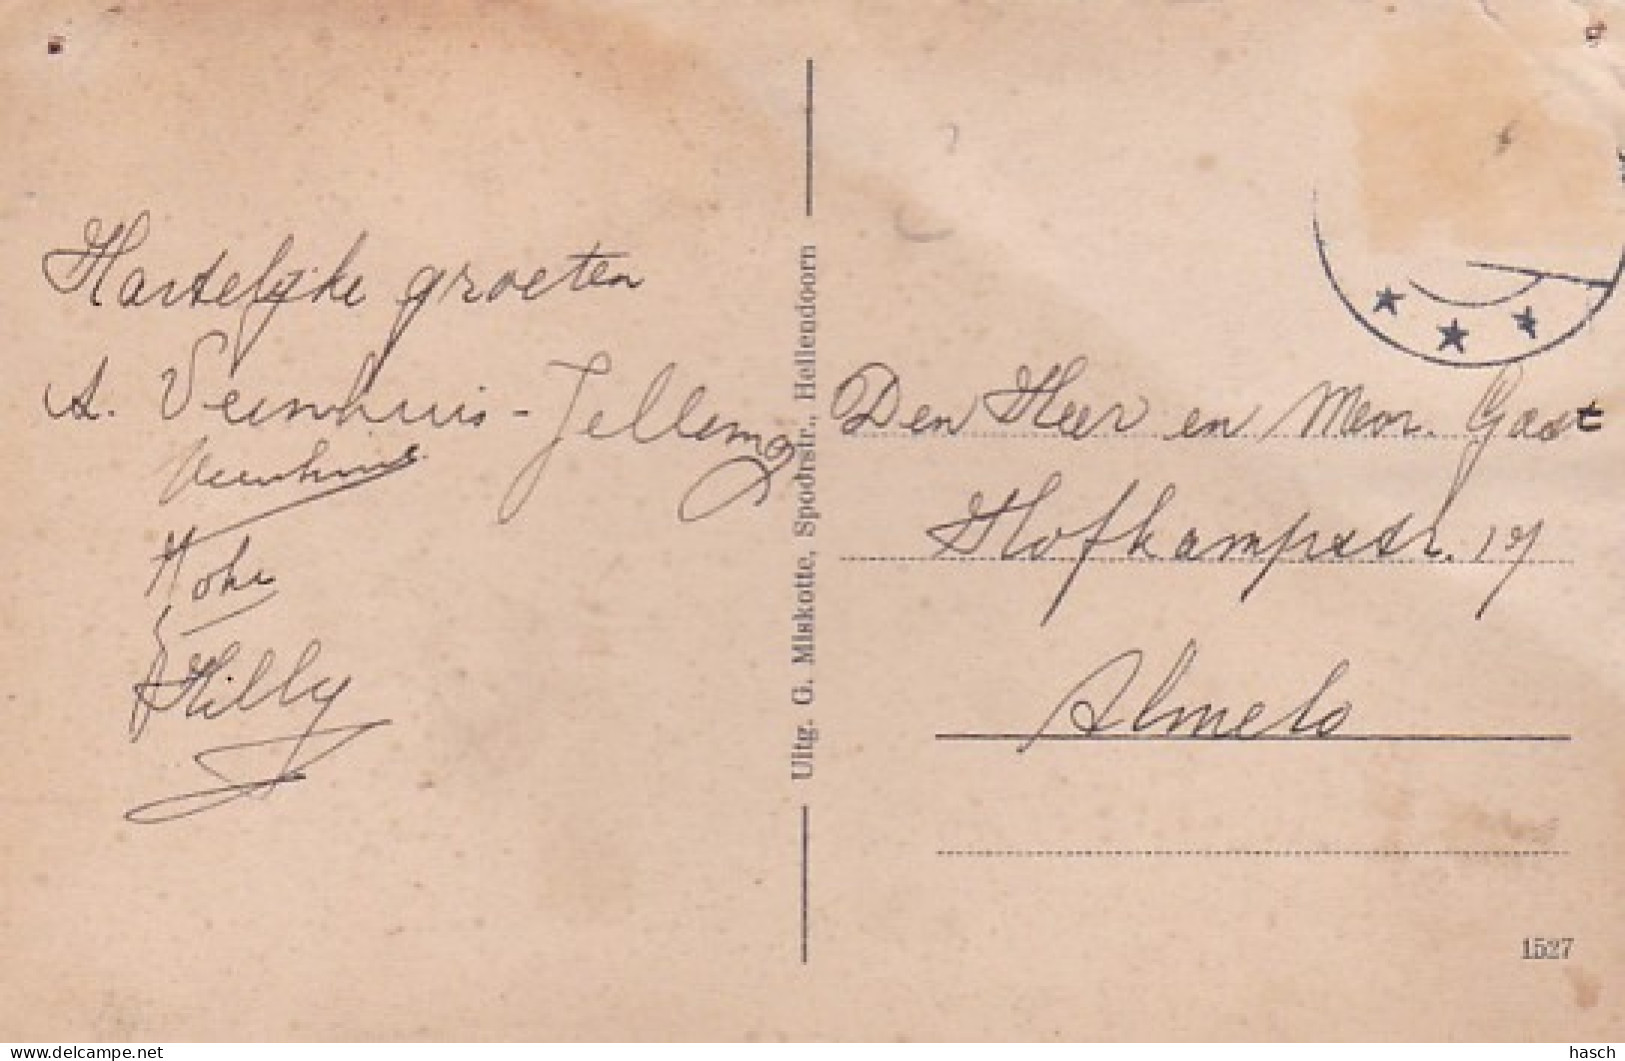 Hartelijke groeten
A. Veenhuis-Jellema
Veenhuis
Hilly
Uitg. G. Miskotte, Spoorstr., Hellendoorn
Den Heer en Mevr. Gast
Hofkampstr. 17
Almelo
1527
hasch
delcampe.net